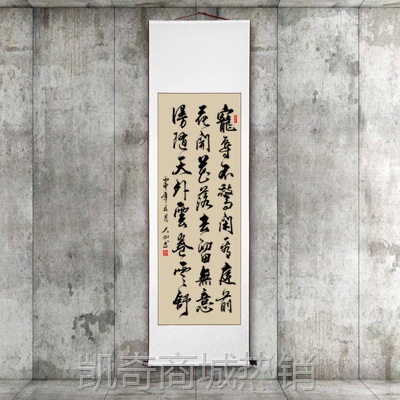 寵辱不驚閑看庭前
花開花落去留無意
漫隨天外雲卷雲舒
凯奇商城热销